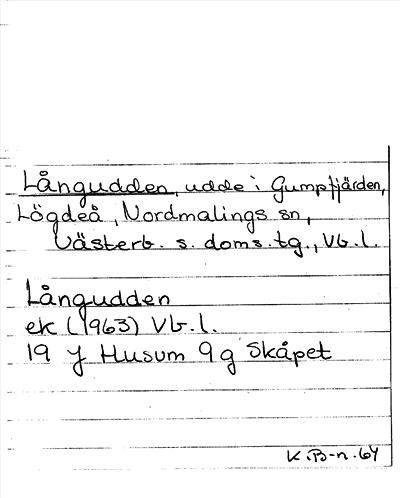 Långudden, udde i Gumpfjärden,
Lögdeå, Nordmalings sn,
Västerb. s. doms.tg., Vb.l.
Långudden
ek (1963) Vb.l.
19 J Husum 9g Skåpet
K.B-n. 64